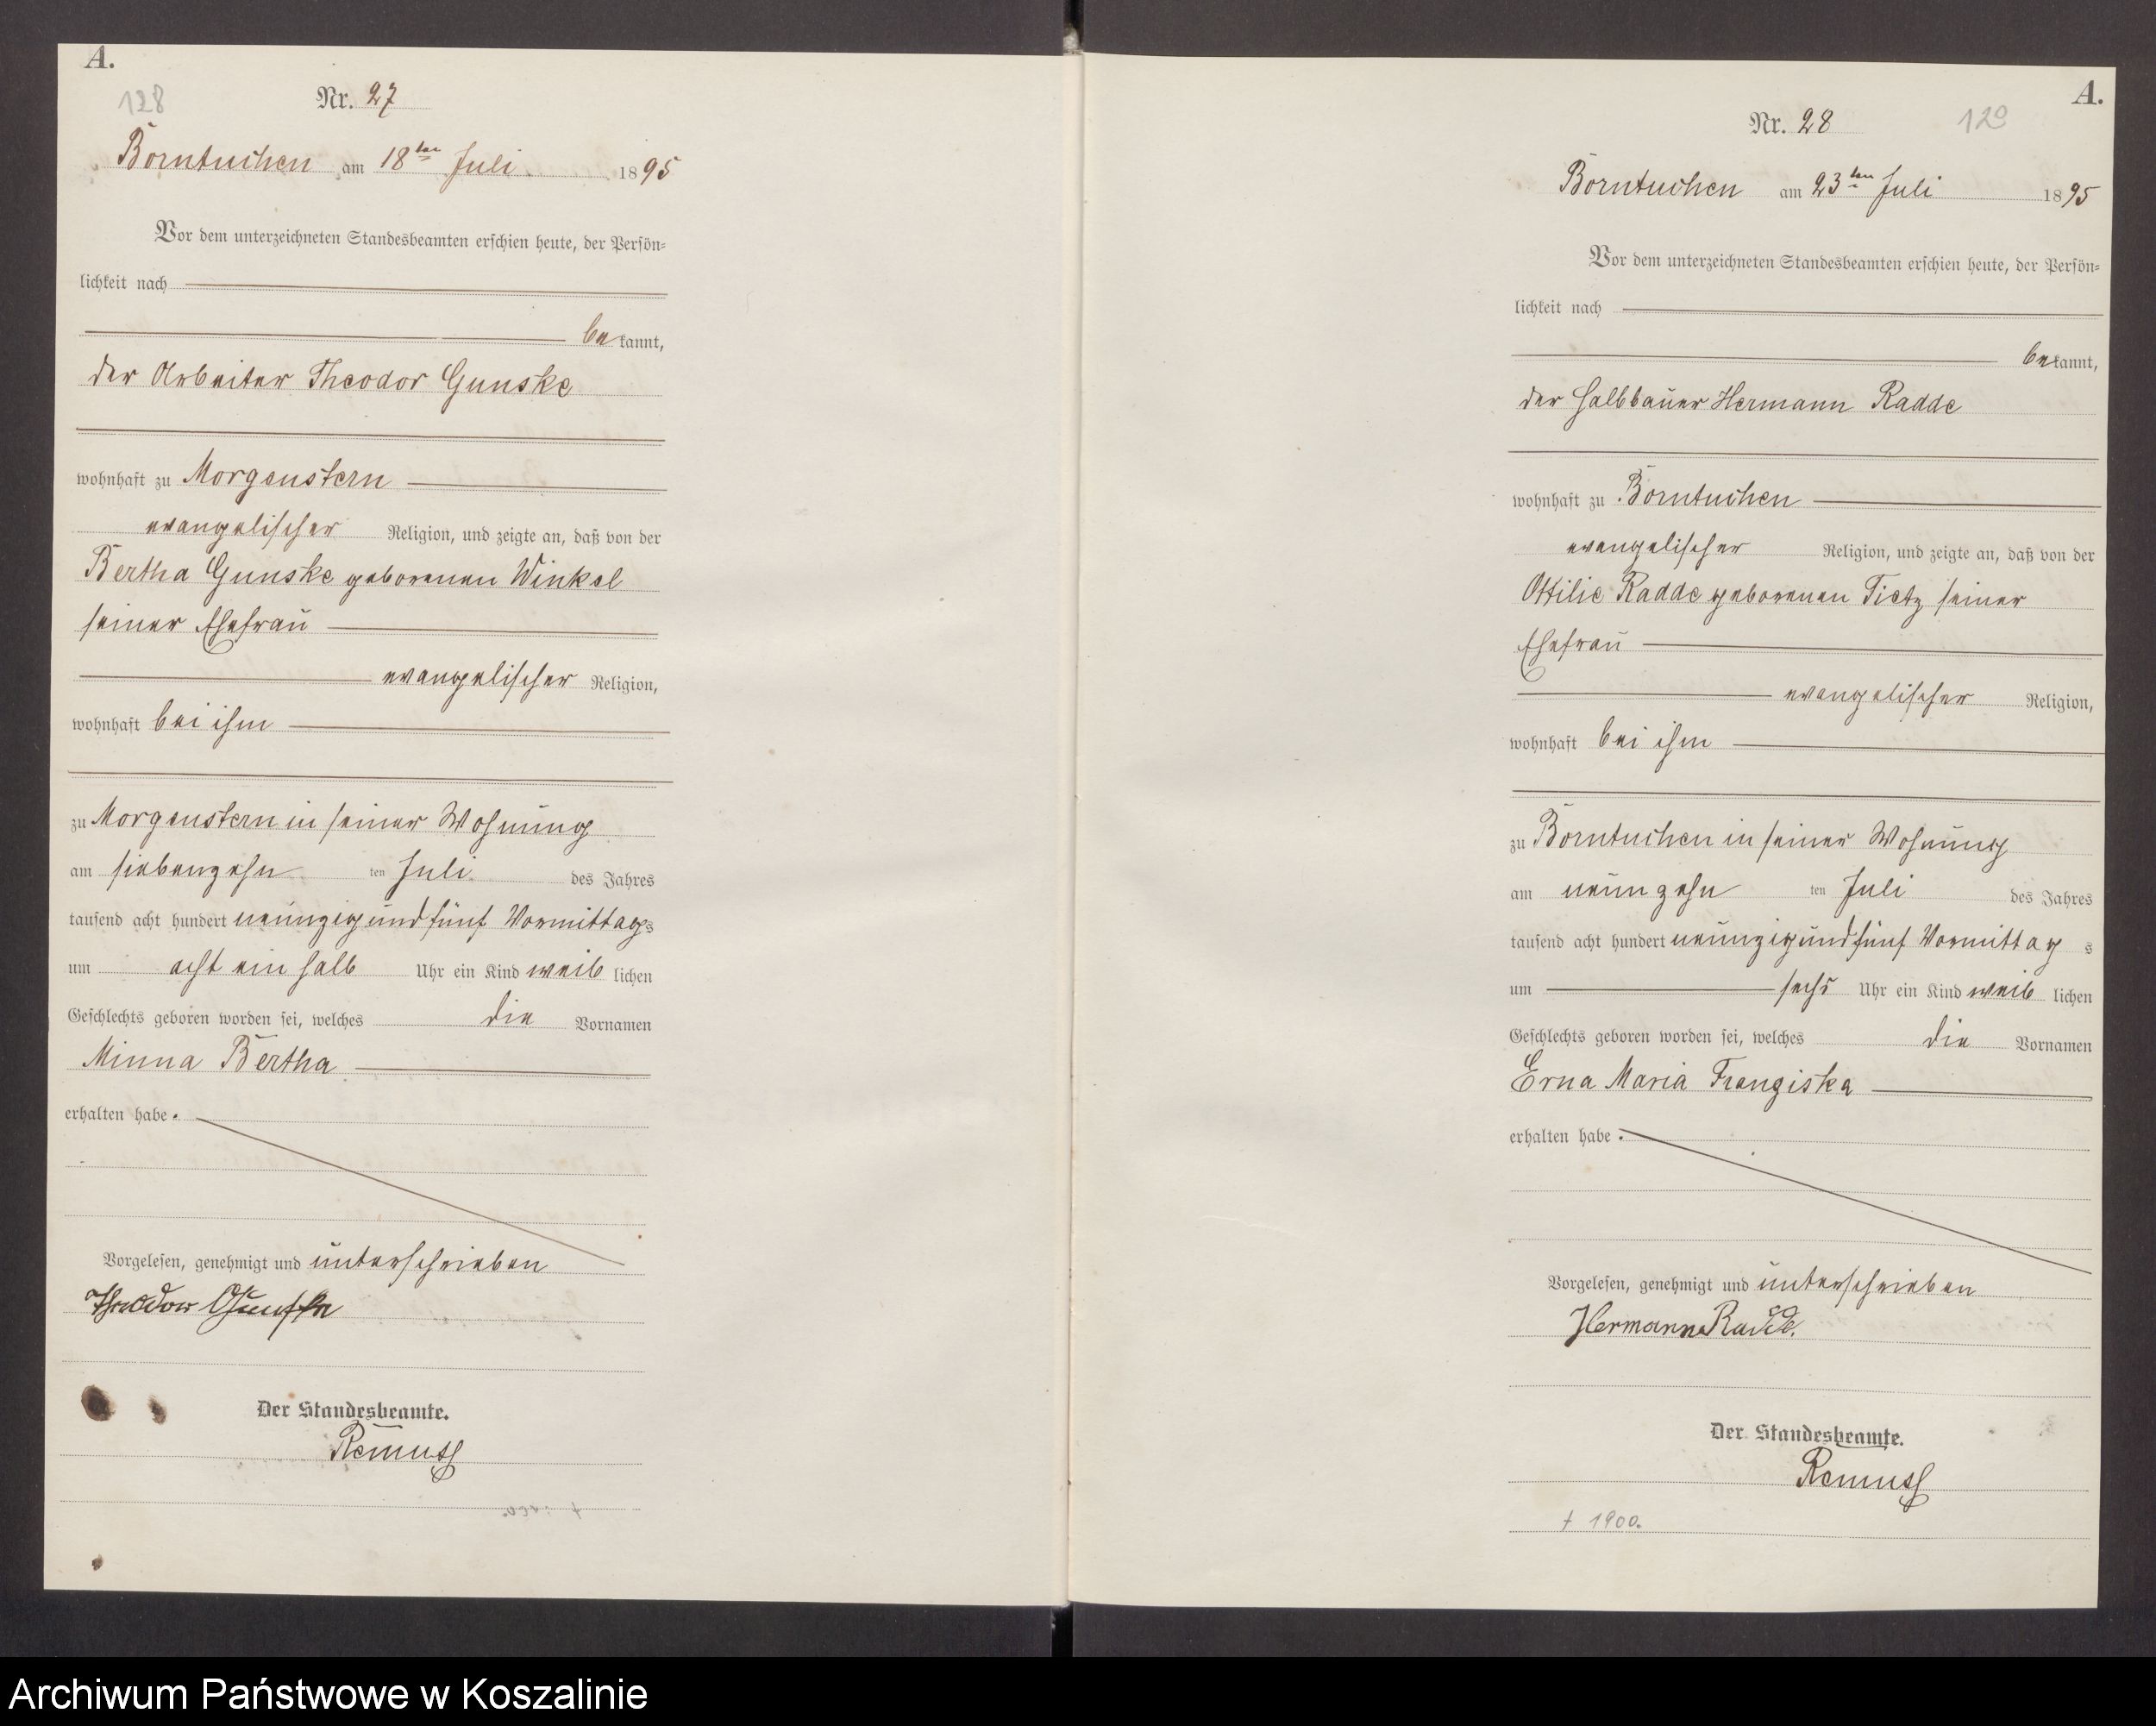 A.
128
Nr. 27
Borntuchen am 18ten Juli 1895
Vor dem unterzeichneten Standesbeamten erschien heute, der Persön-
lichkeit nach
bekannt,
der Arbeiter Theodor Gunske
wohnhaft zu Morgenstern
evangelischer Religion, und zeigte an, daß von der
Bertha Gunske geborenen Winkel
seiner Ehefrau
evangelischer Religion,
wohnhaft bei ihm
zu Morgenstern in seiner Wohnung
am siebenzehn ten Juli des Jahres
tausend acht hundert neunzig und fünf Vormittags
um acht ein halb Uhr ein Kind weiblichen
Geschlechts geboren worden sei, welches die Vornamen
Minna Bertha
erhalten habe.
Vorgelesen, genehmigt und unterschrieben
Theodor Gunske
Der Standesbeamte.
Remus
A.
Nr. 28 129
Borntuchen am 23ten Juli 1895
Vor dem unterzeichneten Standesbeamten erschien heute, der Persön-
lichkeit nach
bekannt,
der Halbbauer Hermann Radde
wohnhaft zu Borntuchen
evangelischer Religion, und zeigte an, daß von der
Ottilie Radde geborenen Tietz seiner
Ehefrau
evangelischer Religion,
wohnhaft bei ihm
zu Borntuchen in seiner Wohnung
am neunzehn ten Juli des Jahres
tausend acht hundert neunzig und fünf Vormittags
um sechs Uhr ein Kind weiblichen
Geschlechts geboren worden sei, welches die Vornamen
Erna Maria Franziska
erhalten habe.
Vorgelesen, genehmigt und unterschrieben
Hermann Radde.
Der Standesbeamte.
Remus
† 1900.
Archiwum Państwowe w Koszalinie